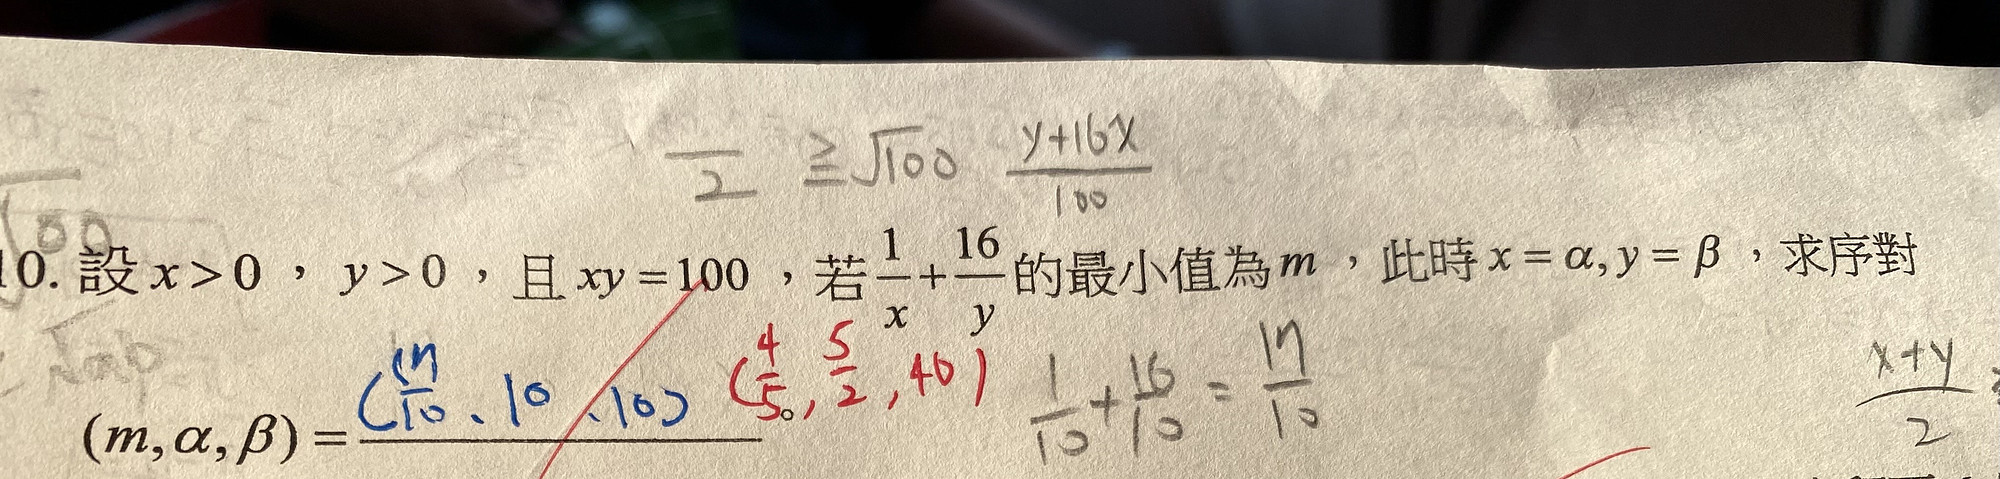 ─/2 ≧ √100 (y+16x)/100
√00
10. 設 x > 0 , y > 0 , 且 xy = 100 , 若 1/x + 16/y 的最小值為 m , 此時 x = α, y = β , 求序對
√ab
(m, α, β) = (17/10、10、10) 。 (4/5, 5/2, 40) 1/10 + 16/10 = 17/10
(x+y)/2 ≧